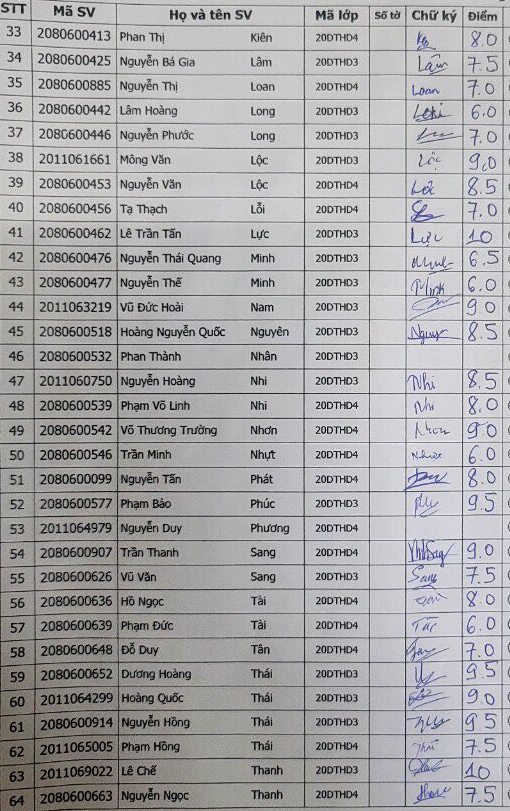 STT Mã SV Họ và tên SV Mã lớp Số tờ Chữ ký Điểm
33 2080600413 Phan Thị Kiên 20DTHD4 8.0
34 2080600425 Nguyễn Bá Gia Lâm 20DTHD3 Lâm 7.5
35 2080600885 Nguyễn Thị Loan 20DTHD4 Loan 7.0
36 2080600442 Lâm Hoàng Long 20DTHD3 6.0
37 2080600446 Nguyễn Phước Long 20DTHD3 7.0
38 2011061661 Mông Văn Lộc 20DTHD3 Lộc 9.0
39 2080600453 Nguyễn Văn Lộc 20DTHD4 Lộc 8.5
40 2080600456 Tạ Thạch Lỗi 20DTHD4 7.0
41 2080600462 Lê Trần Tấn Lực 20DTHD3 Lực 10
42 2080600476 Nguyễn Thái Quang Minh 20DTHD3 Minh 6.5
43 2080600477 Nguyễn Thế Minh 20DTHD3 Minh 6.0
44 2011063219 Vũ Đức Hoài Nam 20DTHD3 9.0
45 2080600518 Hoàng Nguyễn Quốc Nguyên 20DTHD3 8.5
46 2080600532 Phan Thành Nhân 20DTHD3
47 2011060750 Nguyễn Hoàng Nhi 20DTHD3 Nhi 8.5
48 2080600539 Phạm Võ Linh Nhi 20DTHD4 Nhi 8.0
49 2080600542 Võ Thương Trường Nhơn 20DTHD4 Nhơn 9.0
50 2080600546 Trần Minh Nhựt 20DTHD4 Nhựt 6.0
51 2080600099 Nguyễn Tấn Phát 20DTHD4 8.0
52 2080600577 Phạm Bảo Phúc 20DTHD3 9.5
53 2011064979 Nguyễn Duy Phương 20DTHD4
54 2080600907 Trần Thanh Sang 20DTHD4 9.0
55 2080600626 Vũ Văn Sang 20DTHD3 Sang 7.5
56 2080600636 Hồ Ngọc Tài 20DTHD4 8.0
57 2080600639 Phạm Đức Tài 20DTHD4 Tài 6.0
58 2080600648 Đỗ Duy Tân 20DTHD4 7.0
59 2080600652 Dương Hoàng Thái 20DTHD3 9.5
60 2011064299 Hoàng Quốc Thái 20DTHD3 9.0
61 2080600914 Nguyễn Hồng Thái 20DTHD3 9.5
62 2011065005 Phạm Hồng Thái 20DTHD4 Thái 7.5
63 2011069022 Lê Chế Thanh 20DTHD3 10
64 2080600663 Nguyễn Ngọc Thanh 20DTHD4 7.5